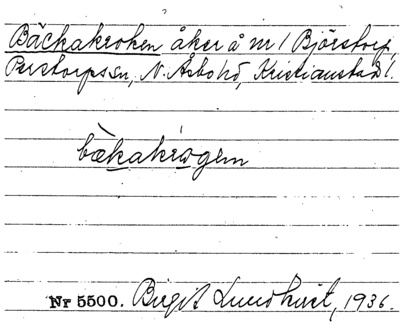 Bäckakroken åker å nr 1 Björstorp,
Perstorps sn, N. Åsbo hd, Kristianstad l.
bækakrogen
Nr 5500. Birgit Lundkvist, 1936.